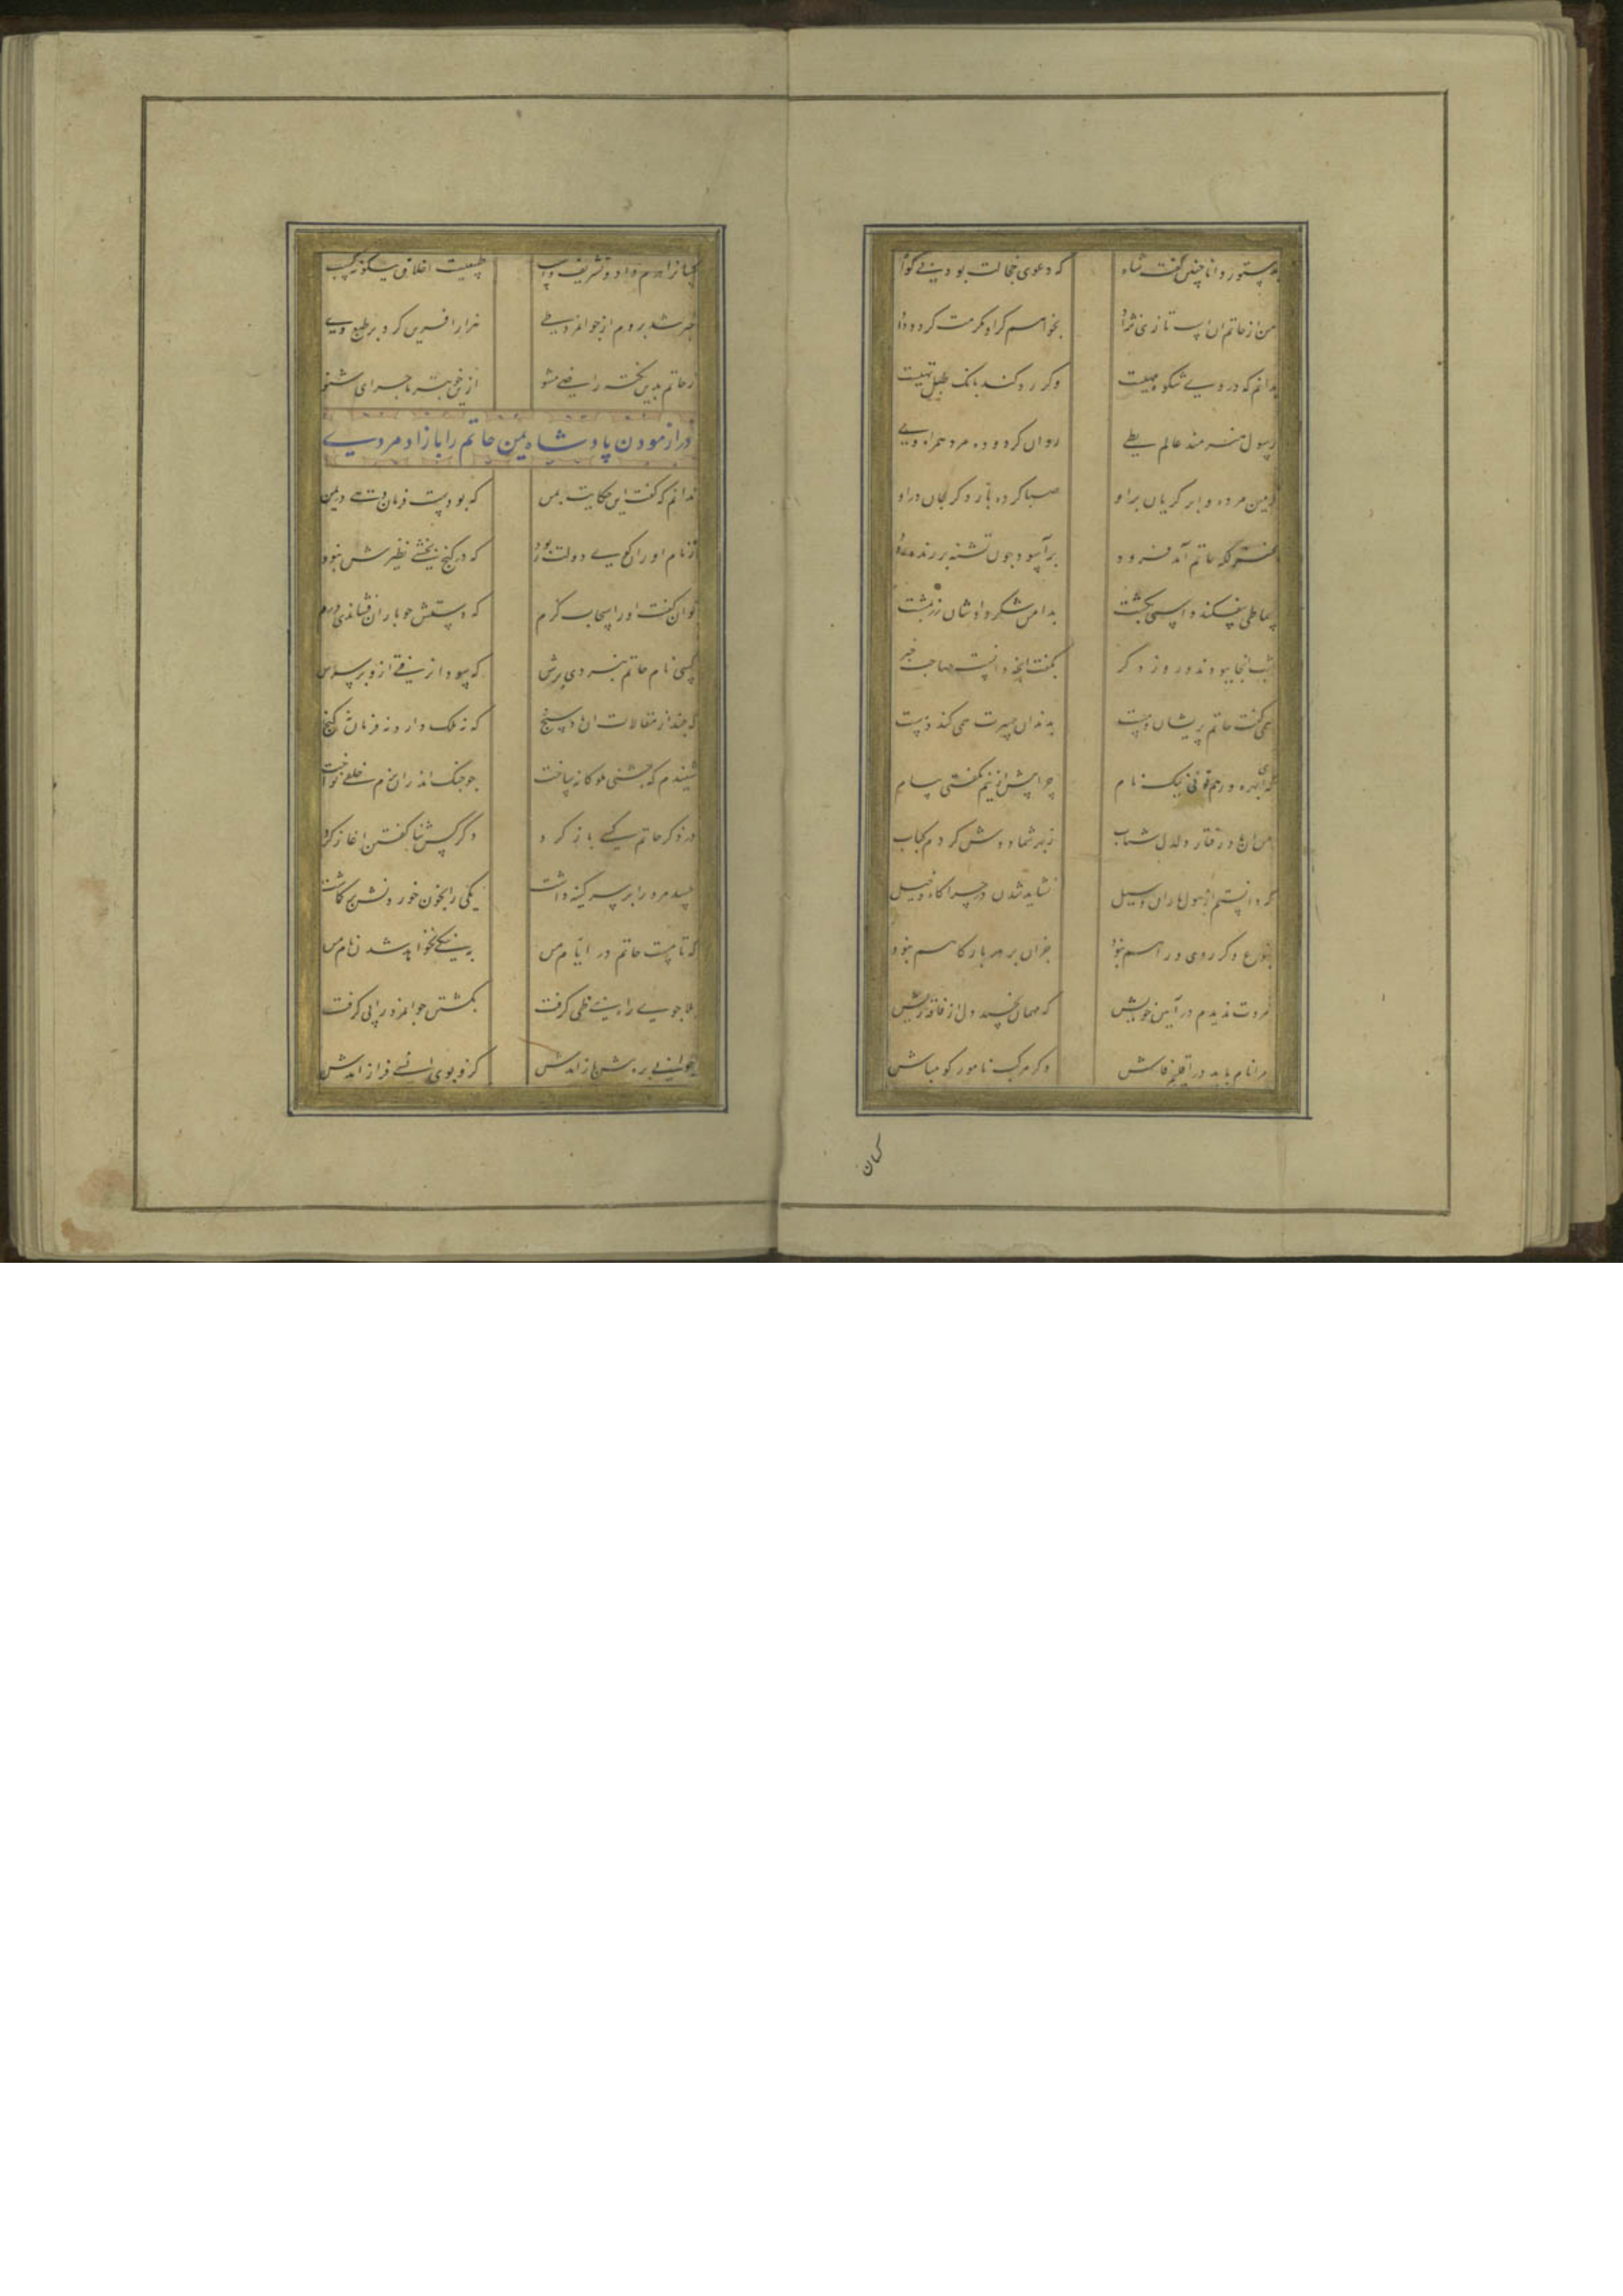 بدستور دانا چنین گفت شاه که دعوی خجالت بود بی گواه
من از حاتم آن اسپ تازی نژاد بخواهم گر او مکرمت کرد و داد
بدانم که در وی شکوه مهیست وگر رد کند بانک طبل تهیست
رسول هنرمند عالم بطی روان کرد و ده مرد همراه وی
زمین مرده و ابر گریان برو صبا کرده بار دگر جان درو
بمنزلگه حاتم آمد فرود برآسود چون تشنه بر زنده رود
سماطی بیفکند و اسپی بکشت بدامن شکر دادشان زر بمشت
شب آنجا ببودند و روز دگر بگفت آنچه دانست صاحب خبر
همی گفت حاتم پریشان و مست بدندان حسرت همی کند دست
که ای بهره ور موبد نیک نام چرا پیش ازینم نگفتی پیام
من آن باد رفتار دلدل شتاب ز بهر شما دوش کردم کباب
که دانستم از هول باران و سیل نشاید شدن در چراگاه خیل
بنوعی دگر روی و راهم نبود جز آن بر در بارگاهم نبود
مروت ندیدم در آیین خویش که مهمان بخسبد دل از فاقه ریش
مرا نام باید در اقلیم فاش دگر مرکب نامور گو مباش
کسان
کسانرا درم داد و تشریف و اسپ طبیعیست اخلاق نیکو نه کسب
خبر شد بروم از جوانمرد طی هزار آفرین کرد بر طبع وی
ز حاتم بدین نکته راضی مشو ازین خوبتر ماجرای شنو
در ازمودن پادشاه یمن حاتم را بازاد مردی
ندانم که گفت این حکایت بمن که بودست فرماندهی در یمن
ز نام آوران گوی دولت ربود که در گنج بخشی نظیرش نبود
توان گفت او را سحاب کرم که دستش چو باران فشاندی درم
کسی نام حاتم نبردی برش که سودا نرفتی ازو بر سرش
که چند از مقالات آن باد سنج که نه ملک دارد نه فرمان نه گنج
شنیدم که جشنی ملوکانه ساخت چو چنگ اندران بزم خلقی نواخت
در ذکر حاتم کسی باز کرد دگر کس ثنا گفتن اغاز کرد
حسد مرد را بر سر کینه داشت یکی را بخون خوردنش بر گماشت
که تا هست حاتم در ایام من به نیکی نخواهد شدن نام من
بلا جوی راه بنی طی گرفت بکشتن جوانمرد را پی گرفت
جوانی بره پیش باز آمدش کزو بوی انسی فراز آمدش